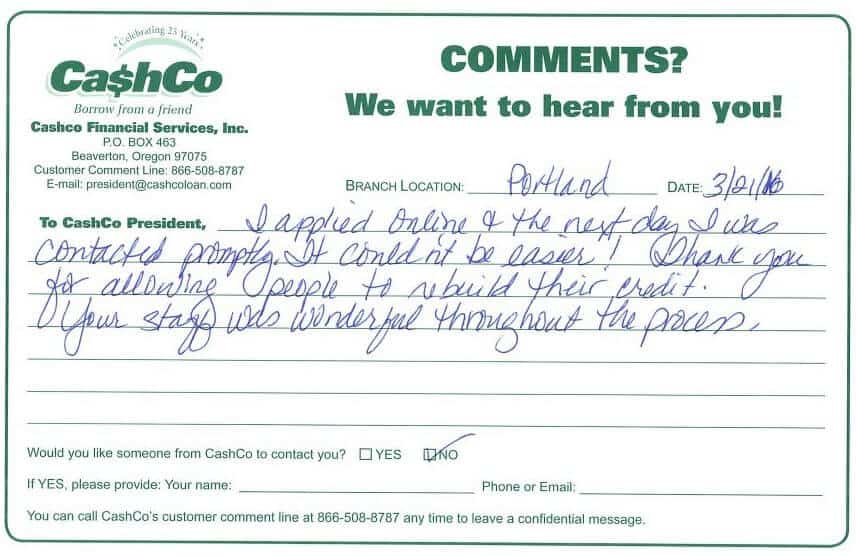 Celebrating 25 Years
Ca$hCo
Borrow from a friend
Cashco Financial Services, Inc.
P.O. BOX 463
Beaverton, Oregon 97075
Customer Comment Line: 866-508-8787
E-mail: president@cashcoloan.com
COMMENTS?
We want to hear from you!
BRANCH LOCATION: Portland DATE: 3/21/16
To CashCo President, I applied Online & the next day I was
contacted promptly. It could n't be easier! Thank you
for allowing people to rebuild their credit.
Your staff was wonderful throughout the process.
Would you like someone from CashCo to contact you? YES NO
If YES, please provide: Your name: Phone or Email:
You can call CashCo's customer comment line at 866-508-8787 any time to leave a confidential message.